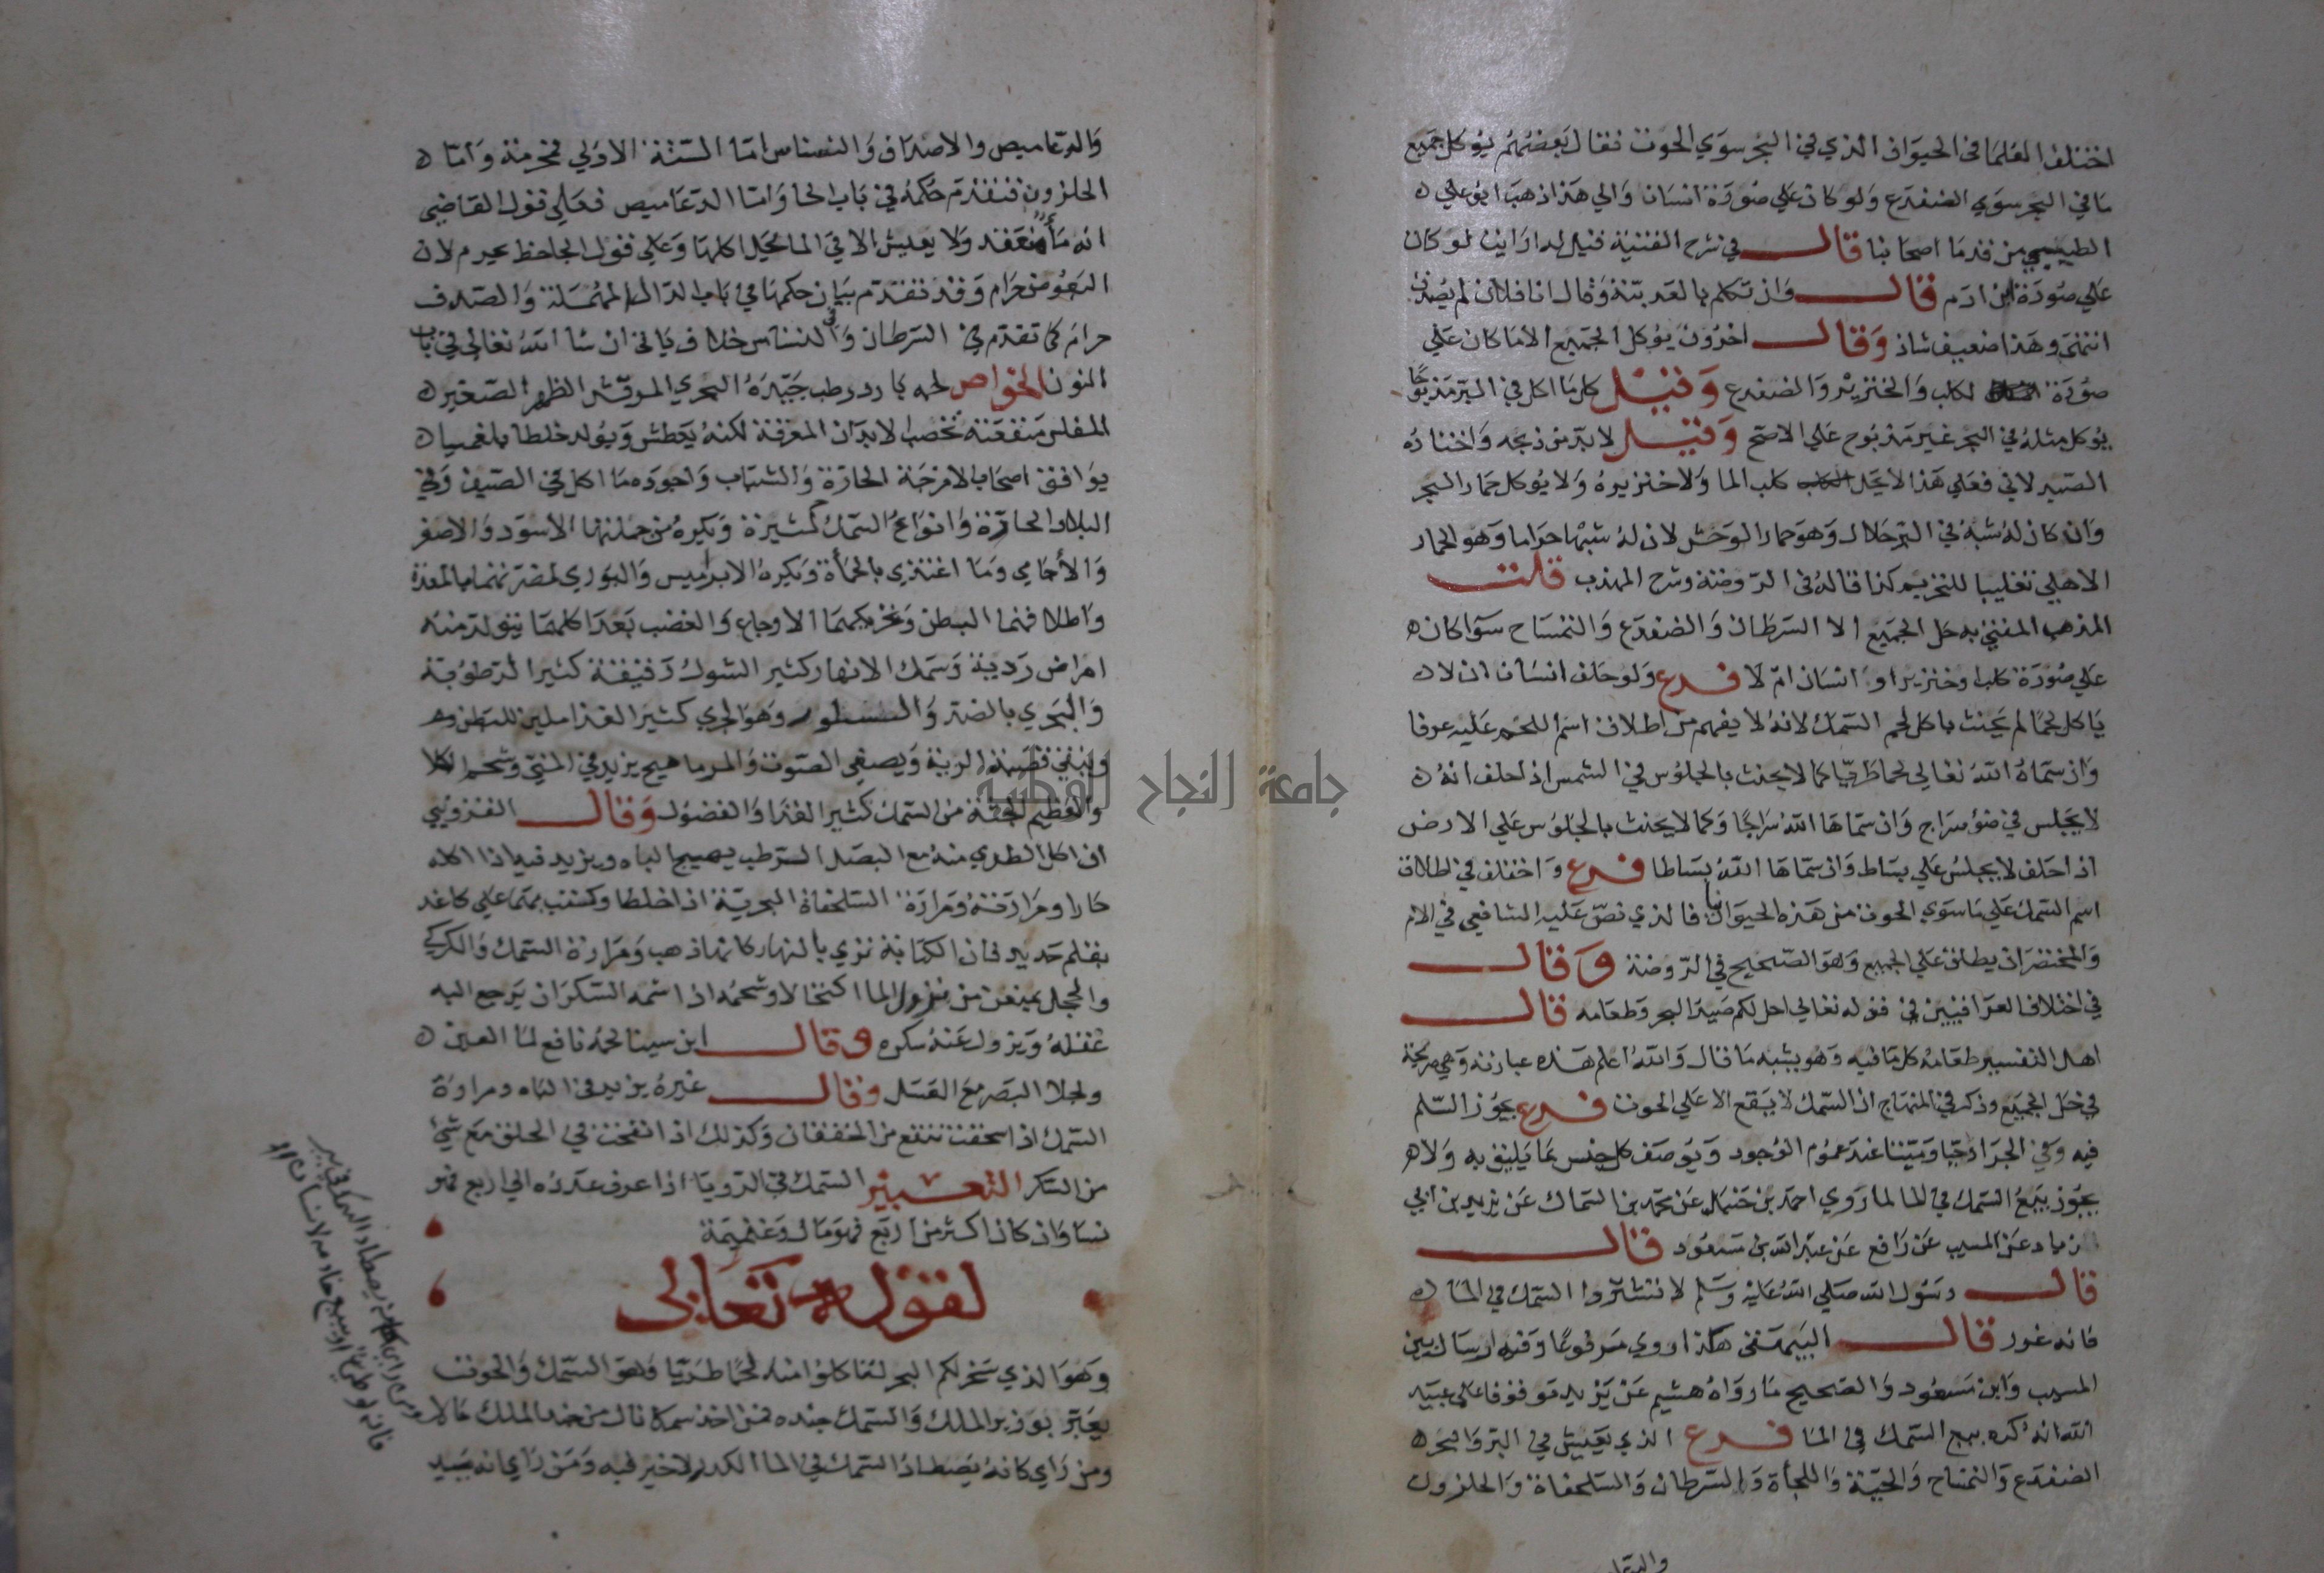 اختلف العلما في الحيوان الذي في البحر سوي الحوت فقال بعضهم يوكل جميع
ما في البحر سوي الضفدع ولو كان علي صورة انسان والي هذا ذهب ابو علي
الطيبي من قدما اصحابنا قال في شرح القنية قيل له ارايت لو كان
علي صورة ابن ادم قال وان تكلم بالعربية وقال انا فلان لم يصدق
انتهي وهذا ضعيف شاذ وقال اخرون يوكل الجميع الا ما كان علي
صورة الكلب والخنزير والضفدع وقيل كل ما اكل في البر مذبوحا
يوكل مثله في البحر غير مذبوح علي الاصح وقيل لا بد من ذبحه واختاره
الصيدلاني فعلي هذا لا يحل كلب الما ولا خنزيره ولا يوكل حمار البحر
وان كان له شبه في البر حلال وهو حمار الوحش لان له شبها حراما وهو الحمار
الاهلي تغليبا للتحريم كذا قاله في الروضة وشرح المهذب قلت
المذهب المفتي به حل الجميع الا السرطان والضفدع والتمساح سوا كان
علي صورة كلب او خنزير او انسان ام لا فرع ولو حلف انسان ان لا
ياكل لحما لم يحنث باكل لحم السمك لانه لا يفهم من اطلاق اسم اللحم عليه عرفا
وان سماه الله تعالي لحما طريا كما لا يحنث بالجلوس في الشمس اذا حلف انه
لا يجلس في ضو سراج وان سماها الله سراجا وكما لا يحنث بالجلوس علي الارض
اذا حلف لا يجلس علي بساط وان سماها الله بساطا فرع واختلف في اطلاق
اسم السمك علي ما سوي الحوت من هذه الحيوانات فالذي نص عليه الشافعي في الام
والمختصر ان يطلق علي الجميع وهو الصحيح في الروضة وقال
في اختلاف العراقيين في قوله تعالي احل لكم صيد البحر وطعامه قال
اهل التفسير طعامه كل ما فيه وهو يشبه ما قال والله اعلم هذه عبارته وهي صريحة
في حل الجميع وذكر في المنهاج ان السمك لا يقع الا علي الحوت فرع يجوز السلم
فيه وفي الجراد حيا وميتا عند عموم الوجود ويوصف كل جنس بما يليق به ولا
يجوز بيع السمك في الما لما روي احمد بن حنبل عن محمد بن السماك عن يزيد بن ابي
زياد عن المسيب عن رافع عن عبد الله بن مسعود قال
قال رسول الله صلي الله عليه وسلم لا تشتروا السمك في الما
فانه غرر قال البيهقي هكذا روي مرفوعا وفيه ارسال بين
المسيب وابن مسعود والصحيح ما رواه هشيم عن يزيد موقوفا علي عبد
الله انه كره بيع السمك في الما فرع الذي يعيش في البر والبحر
الضفدع والتمساح والحية واللجأة والسرطان والسلحفاة والحلزون
والدعا
والدعاميص والاصداف والنسناس اما الستة الاولي فمحرمة واما
الحلزون فتقدم حكمه في باب الحا واما الدعاميص فعلي قول القاضي
انه ما ينعقد ولا يعيش الا في الما يحل اكلها وعلي قول الجاحظ يحرم لان
البعوض حرام وقد تقدم بيان حكمها في باب الدال المهملة والصدف
حرام كما تقدم في السرطان وفي النسناس خلاف ياتي ان شا الله تعالي في باب
النون الخواص لحمه بارد رطب جيده البحري المرقش الظهر الصغير
المفلس منفعته تخصب الابدان المعرقة لكنه يعطش ويولد خلطا بلغميا
يوافق اصحاب الامزجة الحارة والشباب واجوده ما اكل في الصيف وفي
البلاد الحارة وانواع السمك كثيرة ويكره من جملتها الاسود والاصفر
والأجامي وما اغتذي بالحمأة ويكره الابراميس والبوري لمضرتهما بالمعدة
واطلاقهما البطن وتحريكهما الاوجاع والغضب بعد اكلهما يتولد منه
امراض ردية وسمك الانهار كثير الشوك دقيقة كثير الرطوبة
والبحري بالضد والسلور وهو الجري كثير الغذا ملين للبطن وهو
وينقي قصبة الرية ويصفي الصوت والمرماهيج يزيد في المني وشحم الكلا
والعظيم الجثة من السمك كثير الغذا والفضول وقال القزويني
ان اكل الطري منه مع البصل الرطب يهيج الباه ويزيد فيه اذا اكله
حارا ومرارته ومرارة السلحفاة البحرية اذا خلطا وكتب بهما علي كاغد
بقلم حديد فان الكتابة تري بالنهار كانها ذهب ومرارة السمك والكركي
والحجل يمنعن من نزول الما اكتحالا وشحمه اذا اشمه السكران يرجع اليه
عقله ويزول عنه سكره وقال ابن سينا لحمه نافع لما العين
ولجلا البصر مع العسل وقال غيره يزيد في الباه ومرارة
السمك اذا اسحقت تنفع من الخفقان وكذلك اذا نفخت في الحلق مع شيء
من السكر التعبير السمك في الرويا اذا عرف عدده الي اربع فهو
نسا وان كان اكثر من اربع فهو مال وغنيمة
لقوله تعالي
وهو الذي سخر لكم البحر لتاكلوا منه لحما طريا وهو السمك والحوت
يعبر بوزير الملك والسمك جنده فمن اخذ سمكا نال من جند الملك مالا
ومن راي كانه يصطاد السمك في الما الكدر لا خير فيه ومن راي انه يصيد
ومن راي كانه يصطاد السمك في بير
فانه لوطي او يبيع خادمه لانسان
جامعة النجاح الوطنية